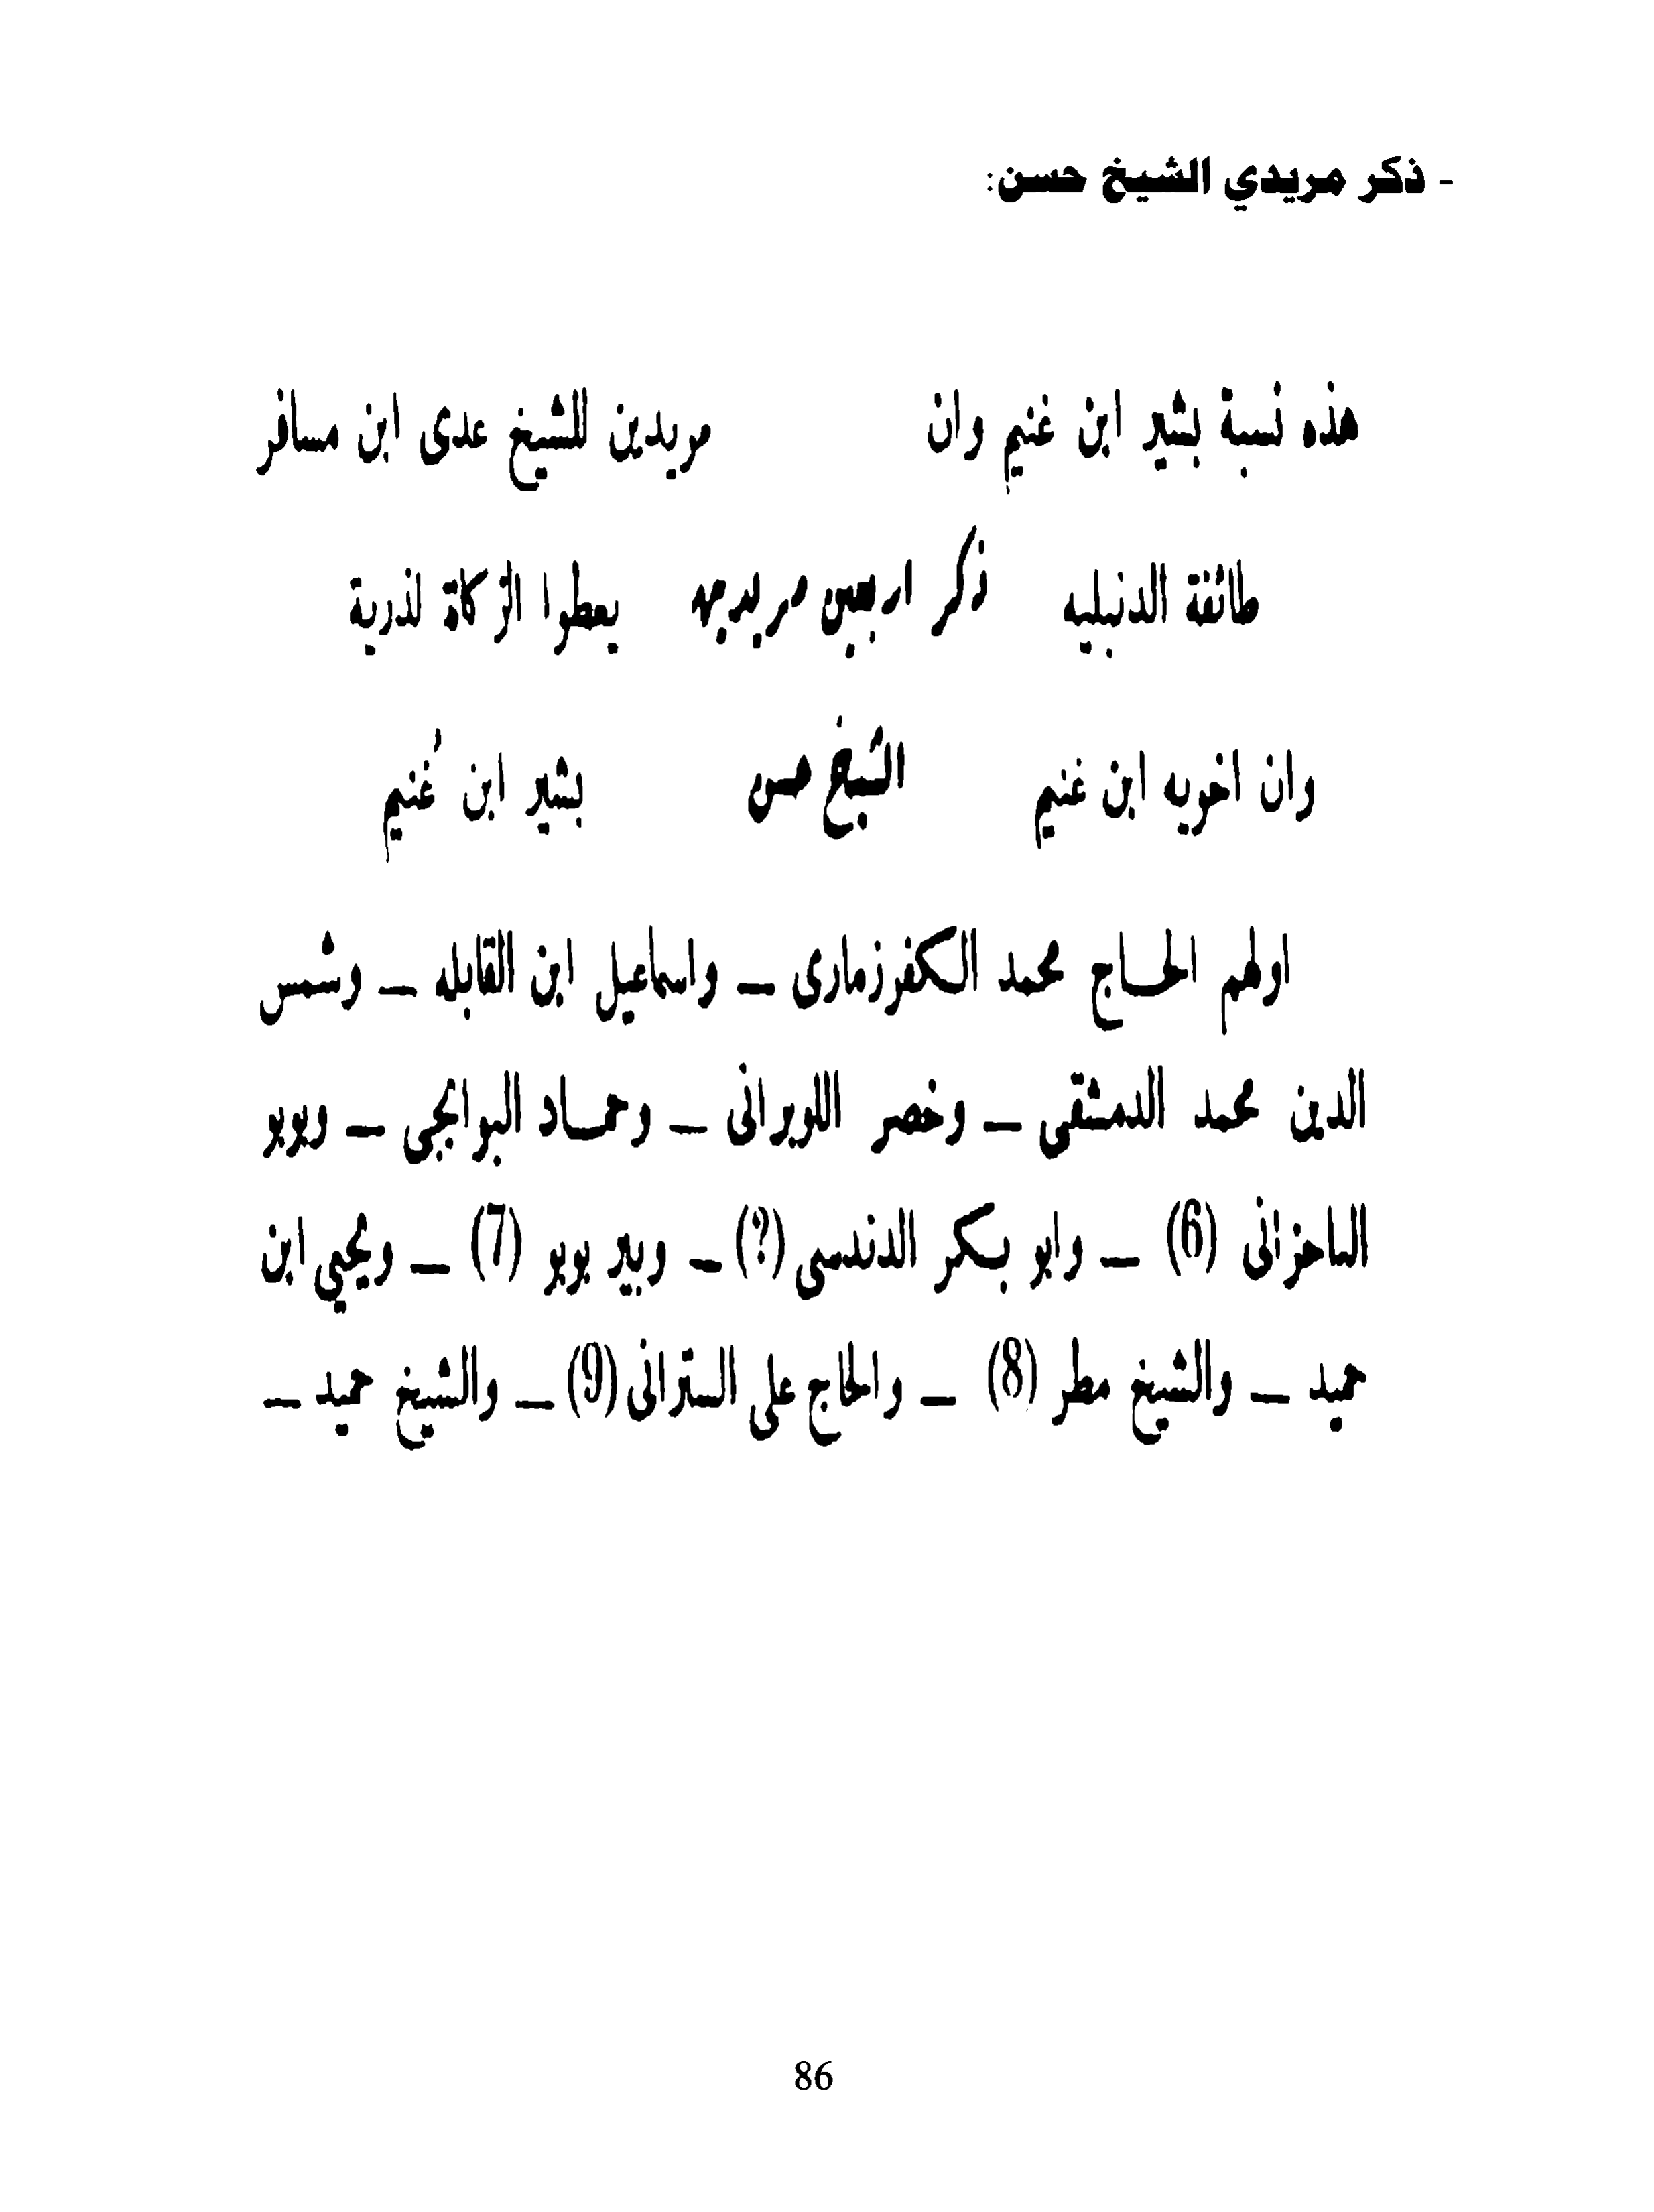 - ذكر مريدي الشيخ حسن:
هذه نسبة بشير ابن غنيم وان مريدين للشيخ عدى ابن مسافر
طائفة الدنبليه ذكر اربعين مريديه يعطوا الزكاة لذرية
وان اخويه ابن غنيم الشيخ حسن بشير ابن غنيم
اولهم الحاج محمد الكفرزمارى – واسماعيل ابن القابله – وشمس
الدين محمد الدمشقى – وخضر اللويرانى – وحماد البوابجى – وبوبو
الباحزانى (6) – وابو بكر الدندسى (?) – وبير بوبو (7) – ويحيي ابن
حميد – والشيخ مطر (8) – والحاج على السترانى (9) – والشيخ حميد –
86